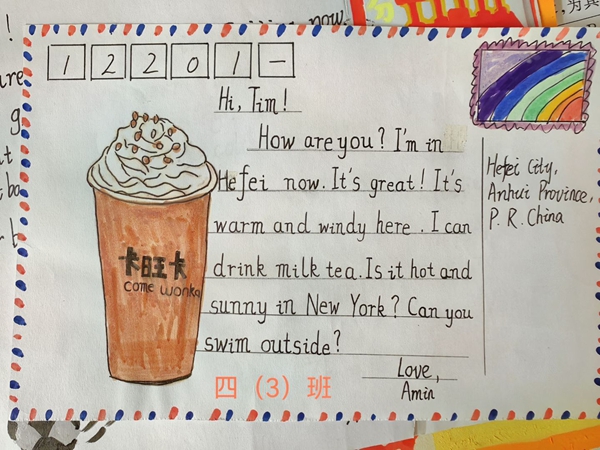 1 2 2 0 1 —
Hi, Tim!
How are you? I'm in
Hefei now. It's great! It's
warm and windy here. I can
drink milk tea. Is it hot and
sunny in New York? Can you
swim outside?
Love,
Amin
Hefei City,
Anhui Province,
P. R. China
卡旺卡
Come wonka
四（3）班